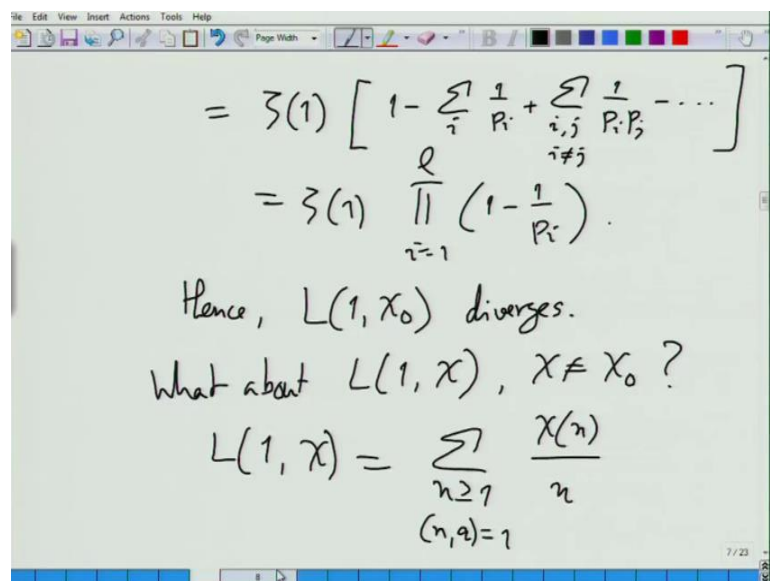 File Edit View Insert Actions Tools Help
Page Width B I
= ζ(1) [ 1 - ∑_i 1/p_i + ∑_{i,j i≠j} 1/(p_i p_j) - .... ]
= ζ(1) ∏_{i=1}^{l} (1 - 1/p_i).
Hence, L(1, χ₀) diverges.
What about L(1, χ), χ ≠ χ₀ ?
L(1, χ) = ∑_{n≥1 (n,q)=1} χ(n)/n
7 / 23
8